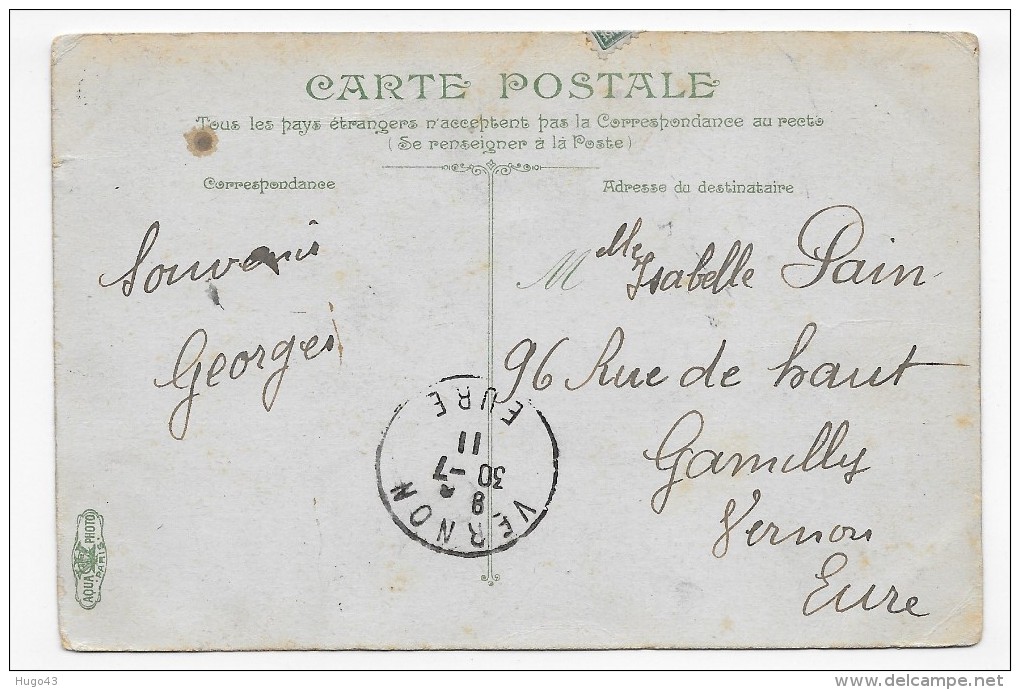 CARTE POSTALE
Tous les pays étrangers n'acceptent pas la Correspondance au recto
(Se renseigner à là Poste)
Correspondance
Souvenir
Georges
Adresse du destinataire
Mlle Isabelle Pain
96 Rue de haut
Gamilly
Vernon
Eure
VERNON
8
30-7
11
EURE
AQUA PHOTO
PARIS
Hugo43
delcampe.net